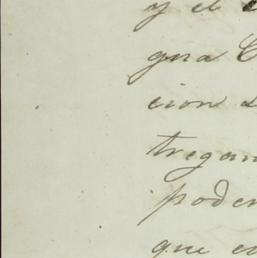 y el
gna C
cion s
tregan
poder
que e